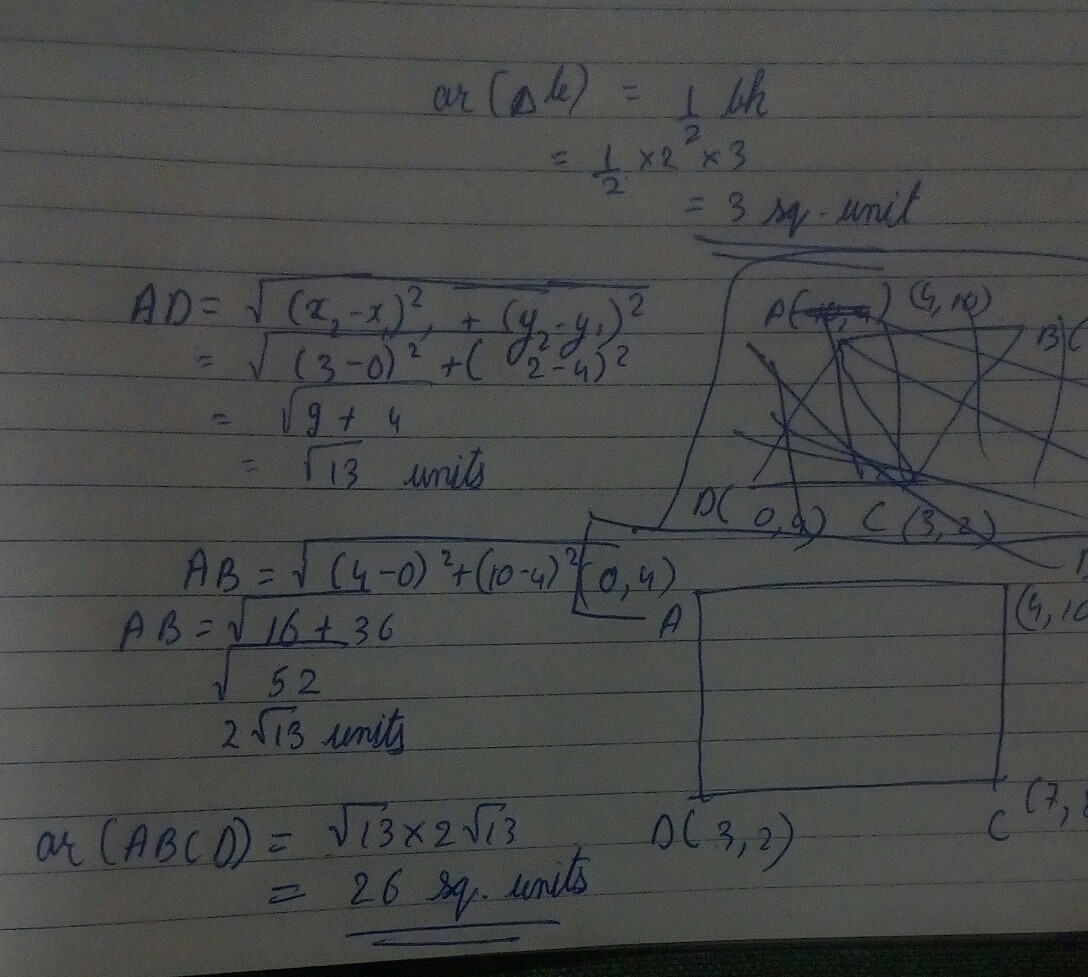 ar (Δle) = 1/2 bh
= 1/2 × 2 × 3
= 3 sq. unit
AD = √(x₂-x₁)² + (y₂-y₁)²
= √(3-0)² + (2-4)²
= √9 + 4
= √13 units
A( ) (4, 10)
B(
D( 0,4) C (3, 2)
AB = √(4-0)² + (10-4)²
AB = √16 + 36
√52
2√13 units
(0, 4)
A
(4, 10
D( 3, 2)
C (7,
ar (ABCD) = √13 × 2√13
= 26 sq. units